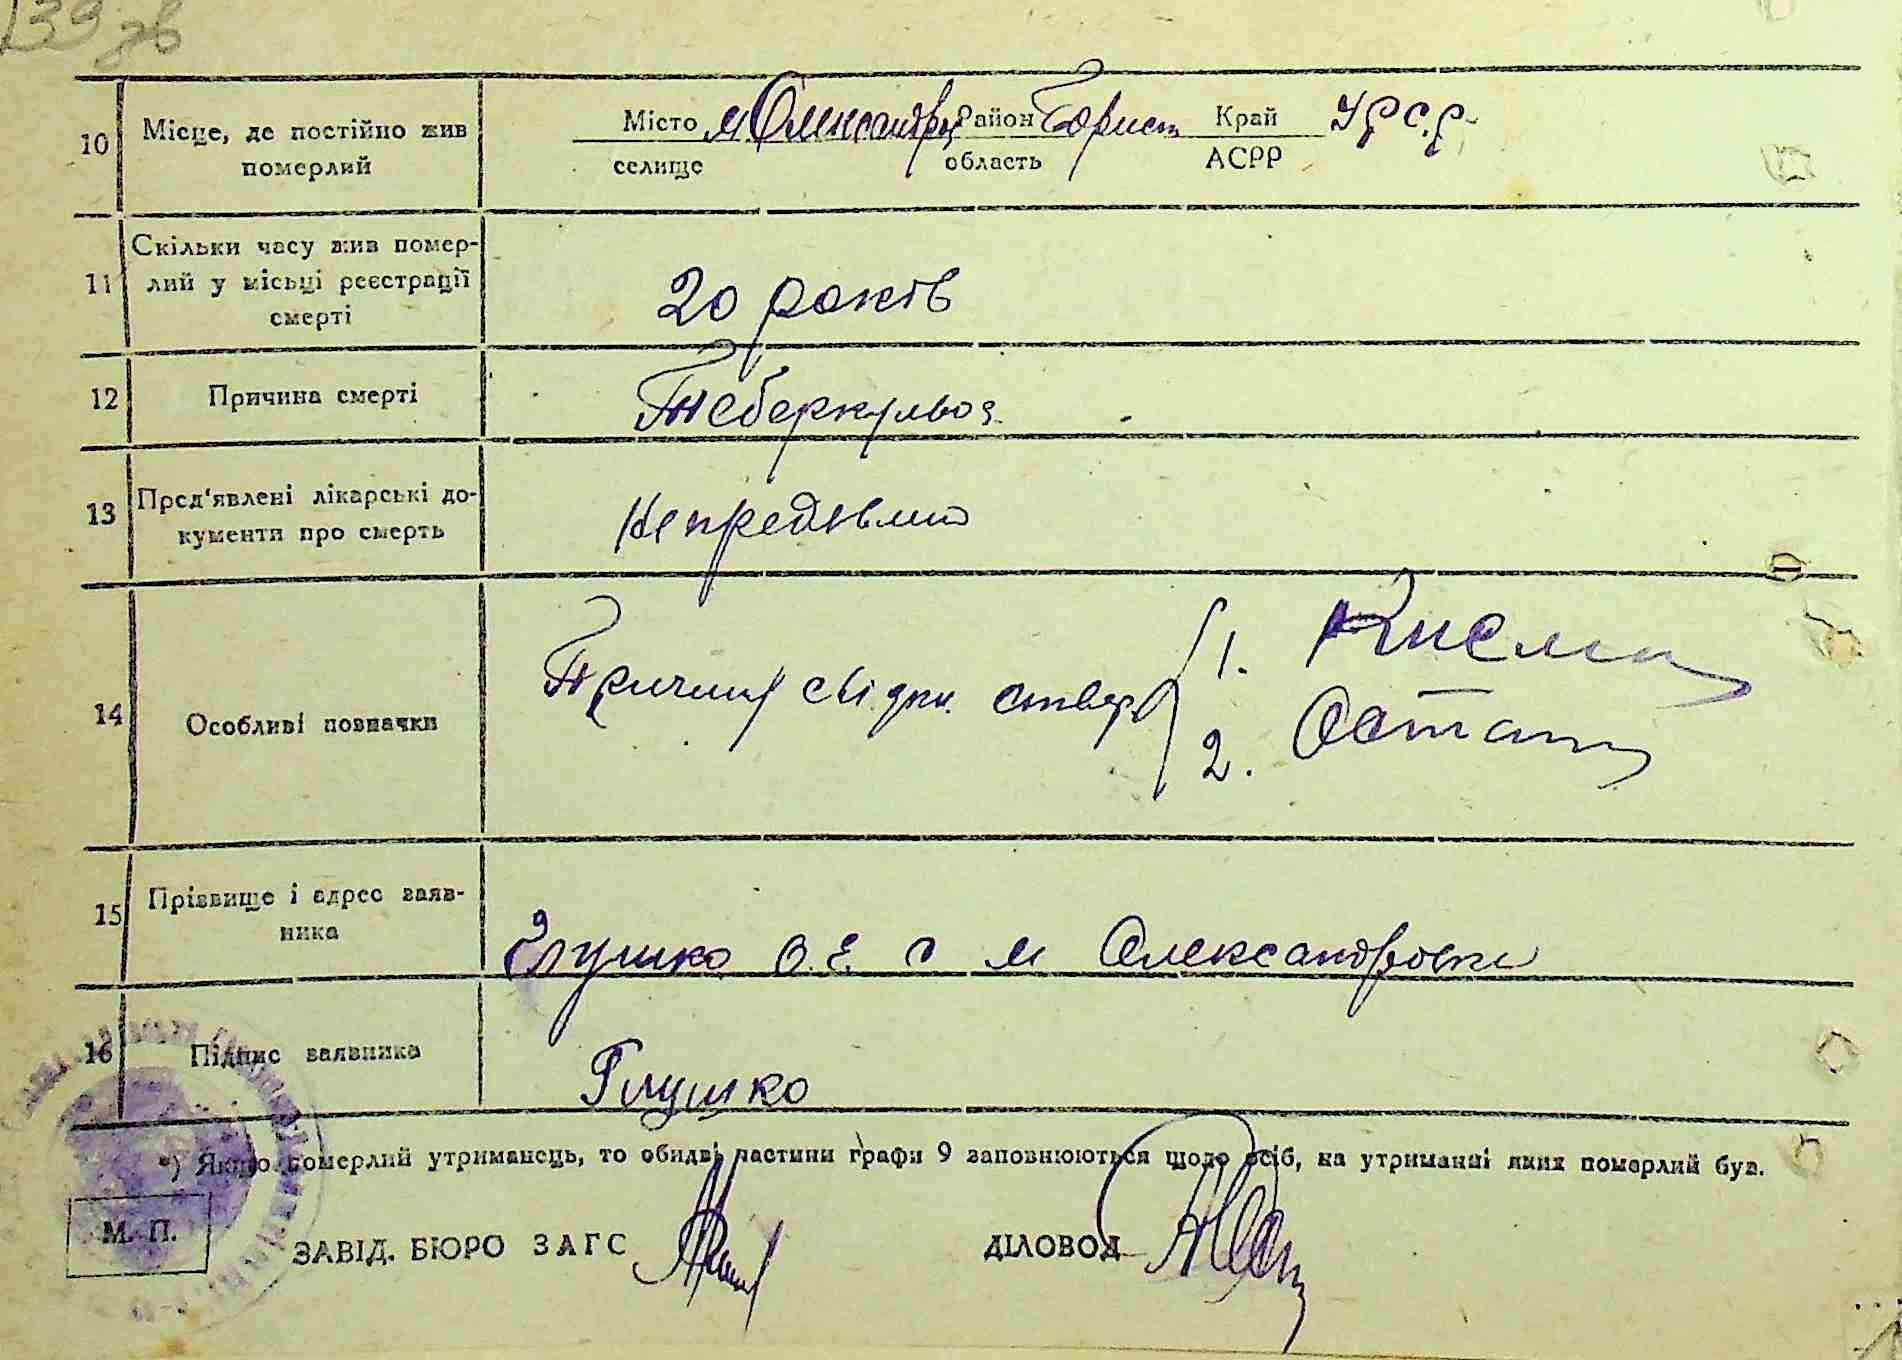 139 зв
10 Місце, де постійно жив померлий
Місто м. Олександрів Район Борисп Край У.Р.С.Р.
селище область АСРР
11 Скільки часу жив помер-
лий у місьці реєстрації
смерті
20 років
12 Причина смерті
Теберкульоз
13 Пред'явлені лікарські до-
кументи про смерть
Непредявлено
14 Особливі позначки
Причину свідки ствер
1. Кисели
2. Остап
15 Прізвище і адрес заяв-
ника
Глушко О. Е. с м Олександровки
16 Підпис заявника
Глушко
*) Якщо померлий утриманець, то обидві частини графи 9 заповнюються щодо осіб, на утриманні яких померлий був.
М. П.
ЗАВІД. БЮРО ЗАГС ДІЛОВОД